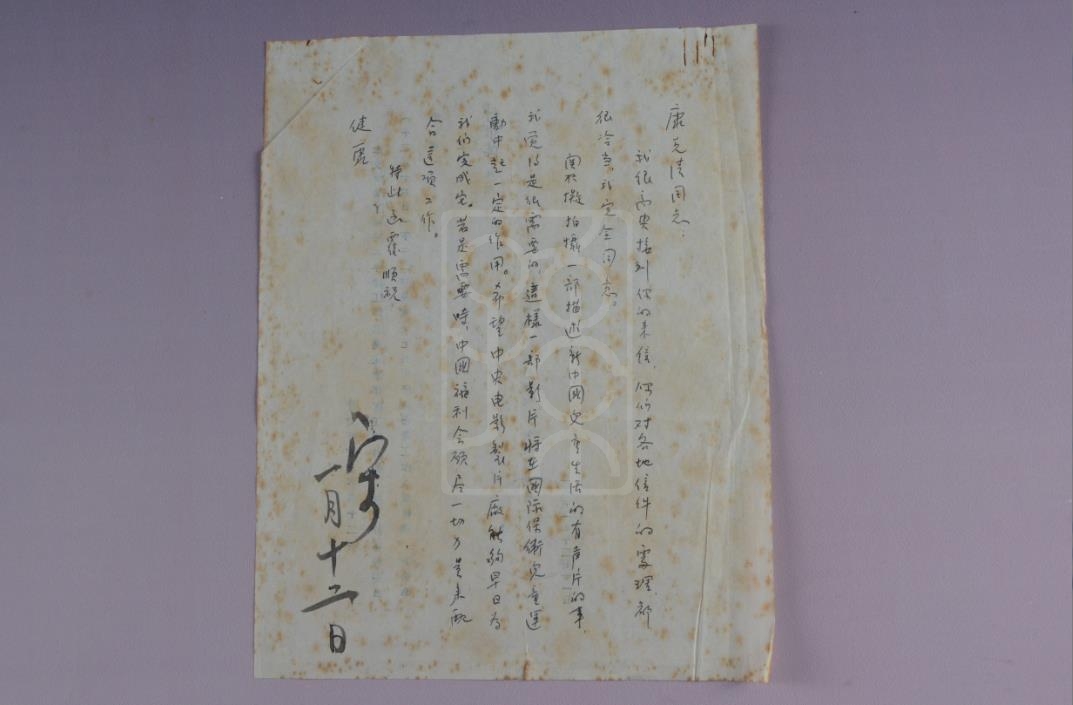 康克清同志：
我很高兴接到你的来信，你们对各地信件的处理，都
很冷当，我完全同意。
関於擬拍攝一部描述新中國兒童生活的有声片的事，
我覚得是很需要的，這樣一部影片将在國际保衛兒童運
動中起一定的作用。希望中央电影製片廠能夠早日为
我们完成它。若是需要時，中國福利会願尽一切力量来配
合這项工作。
特此函覆順祝
健康
一月十二日